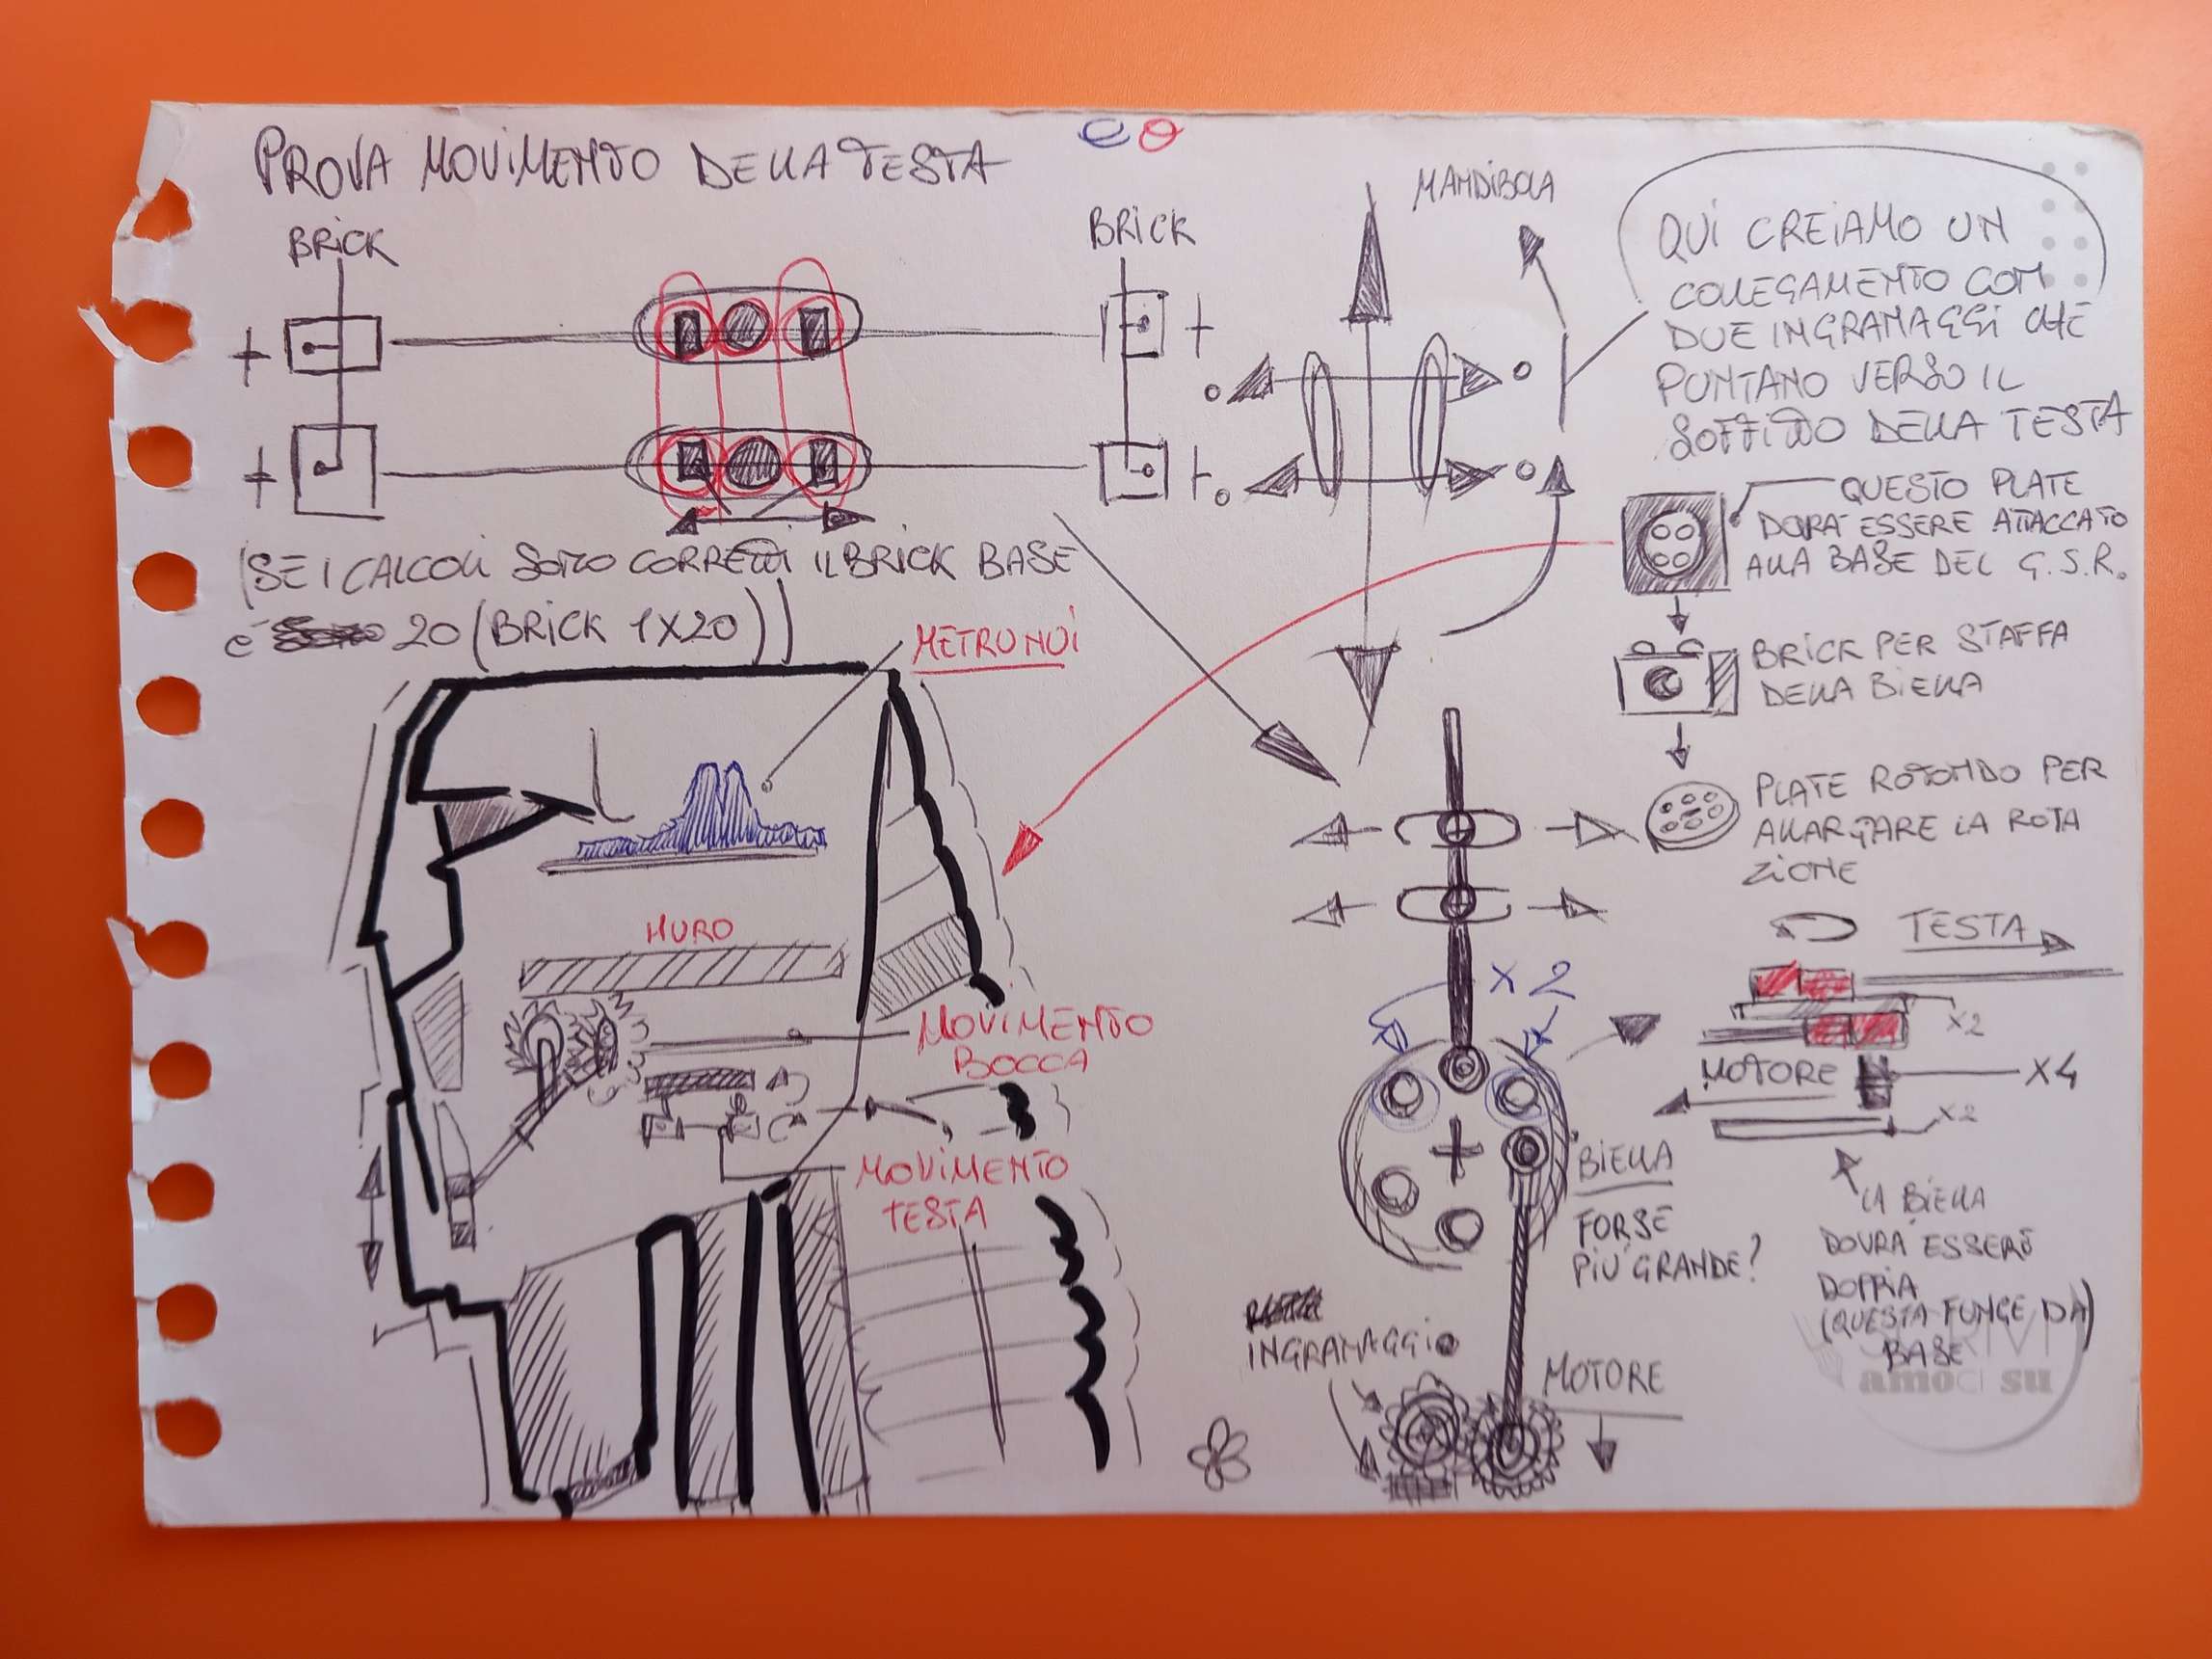 PROVA MOVIMENTO DELLA TESTA
BRICK
BRICK
(SE I CALCOLI SONO CORRETTI IL BRICK BASE
È 20 (BRICK 1X20))
MANDIBOLA
QUI CREIAMO UN
COLLEGAMENTO CON
DUE INGRANAGGI CHE
PUNTANO VERSO IL
SOFFITTO DELLA TESTA
QUESTO PLATE
DOVRÀ ESSERE ATTACCATO
ALLA BASE DEL G.S.R.
BRICK PER STAFFA
DELLA BIELLA
PLATE ROTONDO PER
ALLARGARE LA ROTA
ZIONE
METRO NOI
MURO
MOVIMENTO
BOCCA
MOVIMENTO
TESTA
X2
TESTA
X2
MOTORE
X4
X2
BIELLA
FORSE
PIÙ GRANDE?
LA BIELLA
DOVRÀ ESSERE
DOPPIA
(QUESTA FUNGE DA)
BASE
INGRANAGGIO
MOTORE
amoci su